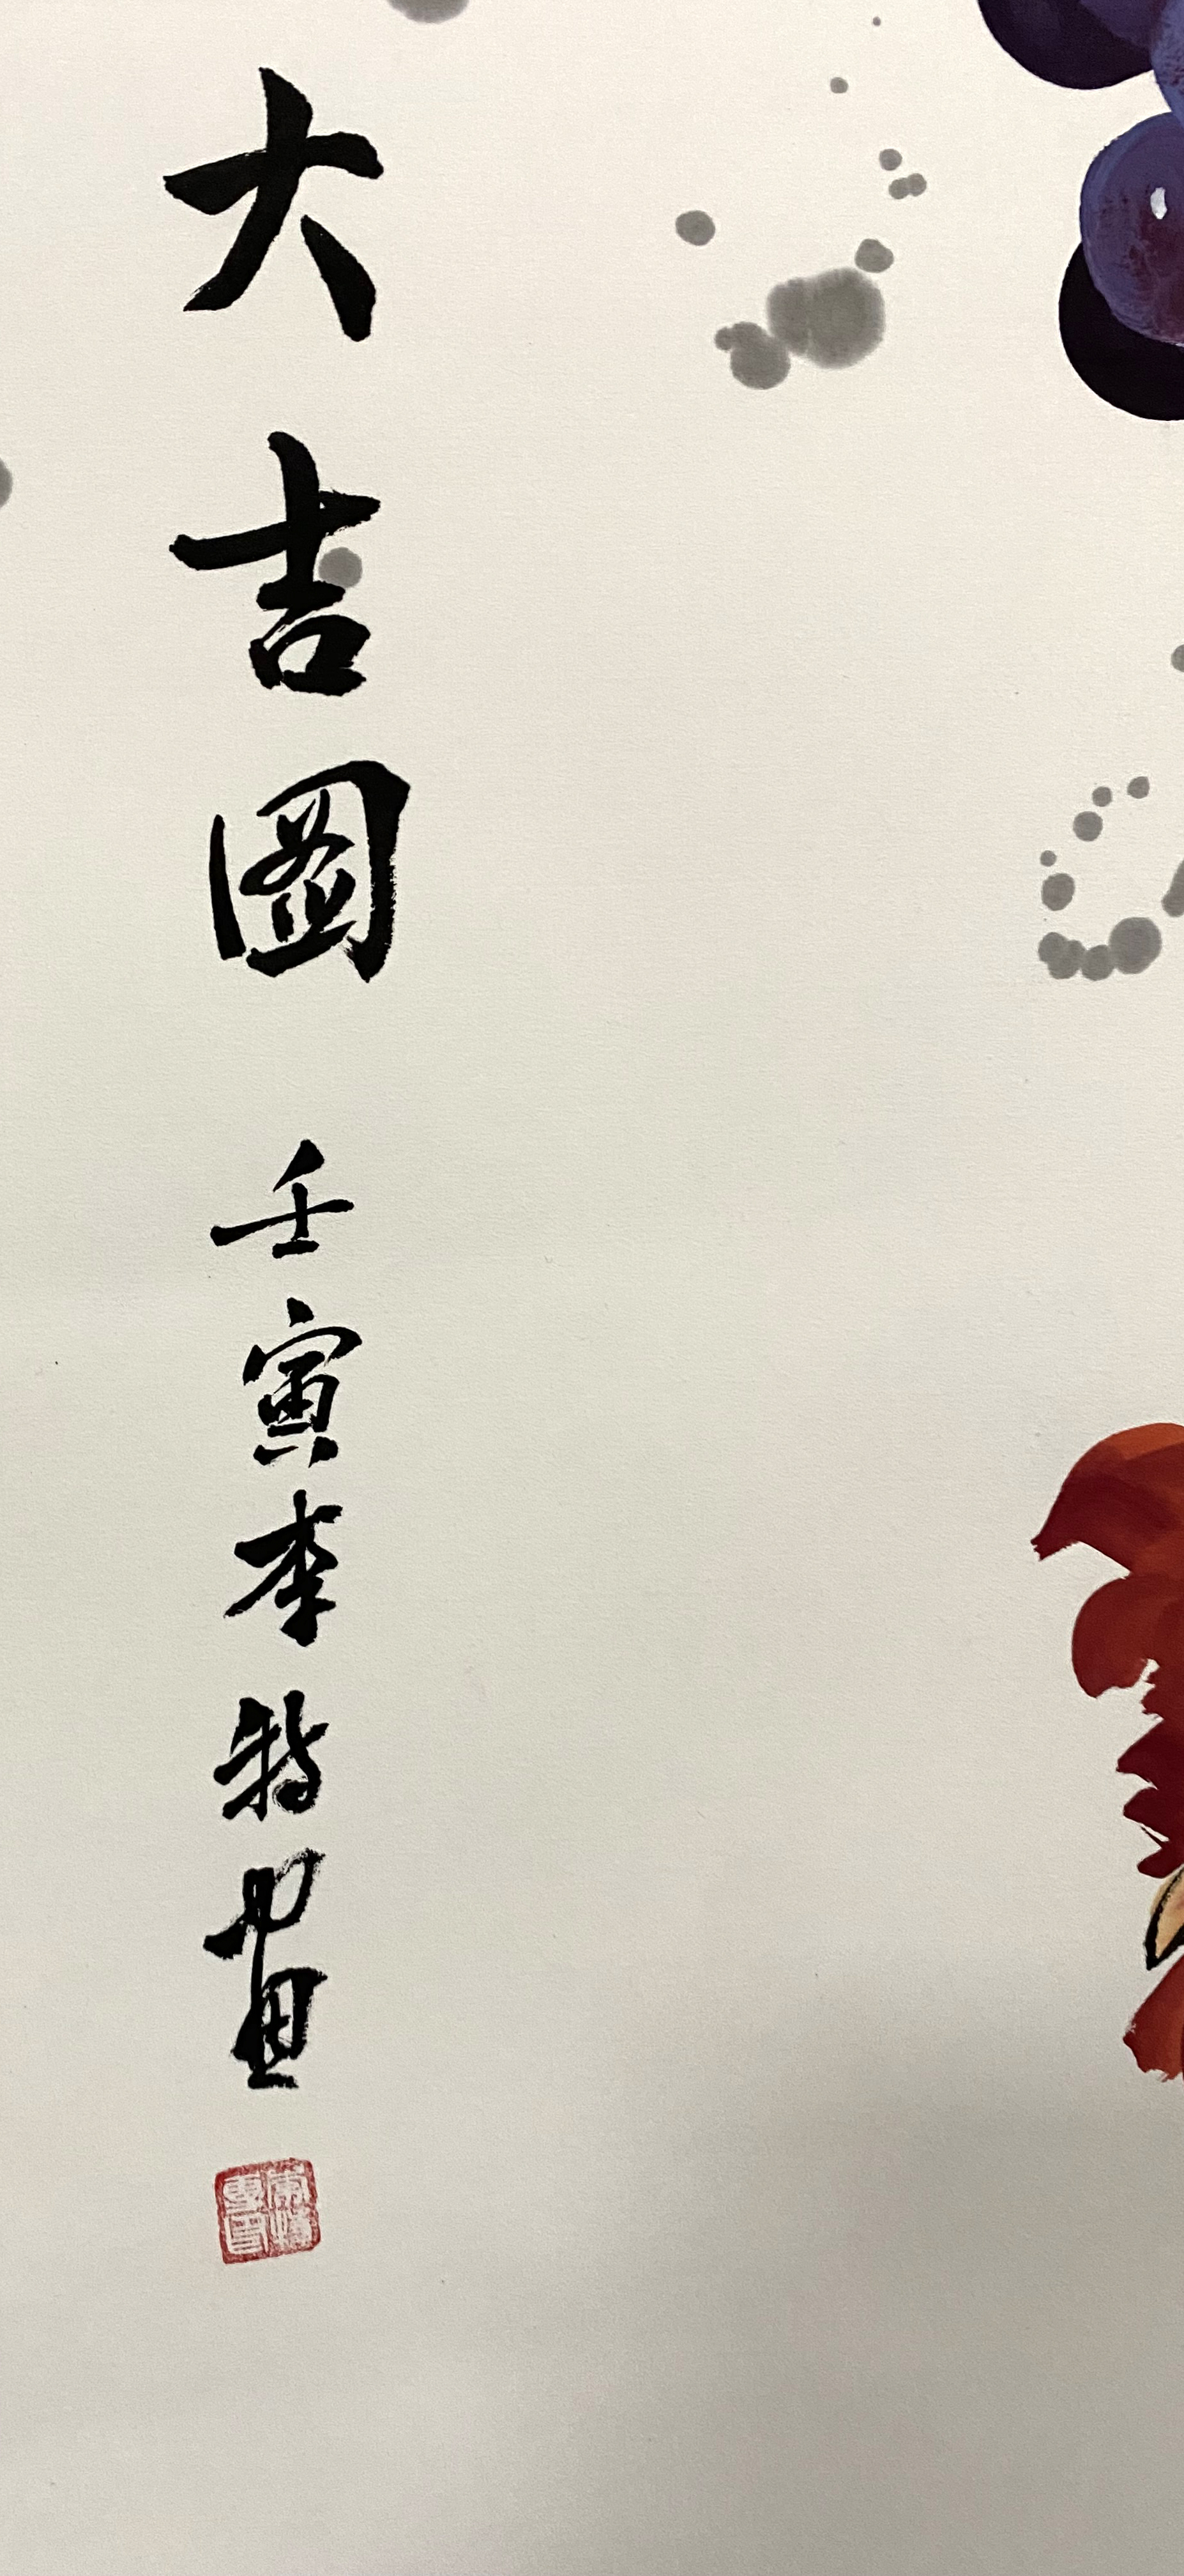 大吉圖 壬寅李特畫